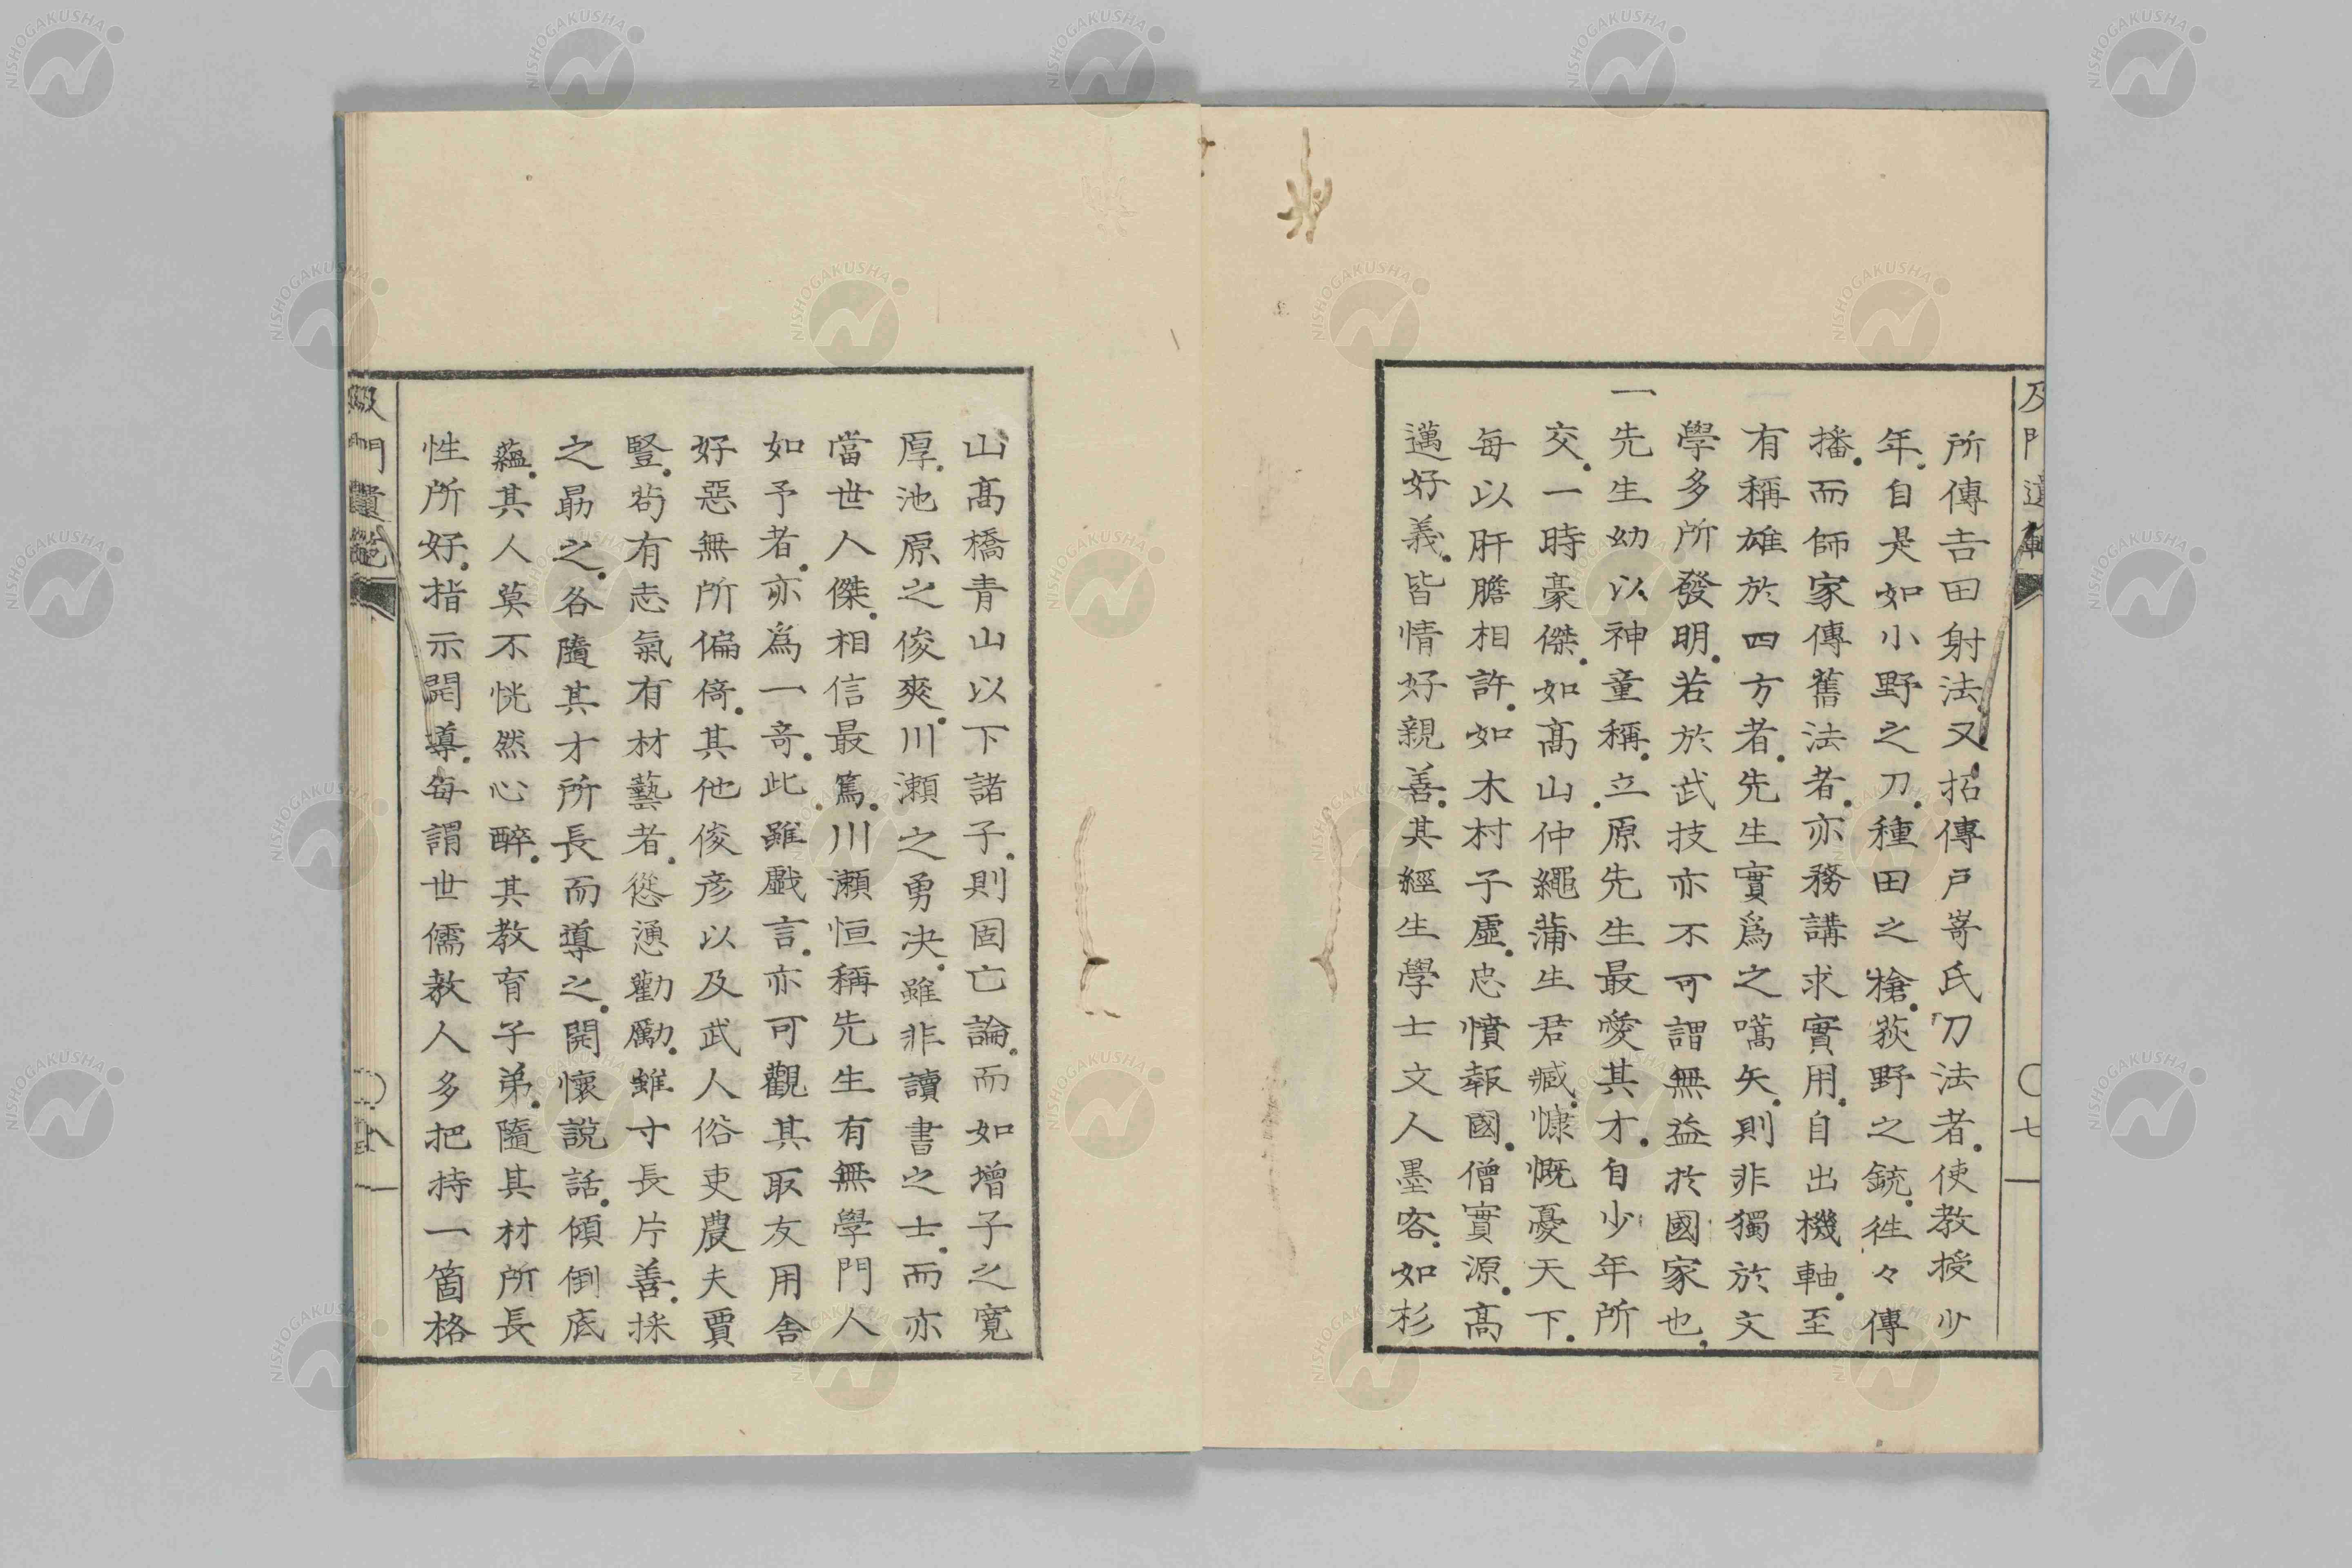 及門遺範
所傳吉田射法又招傳戶嵜氏刀法者使教授少
年自是如小野之刀種田之槍荻野之銃徃々傳
播而師家傳舊法者亦務講求實用自出機軸至
有稱雄於四方者先生實爲之嚆矢則非獨於文
學多所發明若於武技亦不可謂無益於國家也
一先生幼以神童稱立原先生最愛其才自少年所
交一時豪傑如高山仲繩蒲生君臧慷慨憂天下
每以肝膽相許如木村子虛忠憤報國僧實源高
邁好義皆情好親善其經生學士文人墨客如杉
〇七
山高橋青山以下諸子則固亡論而如增子之寬
厚池原之俊爽川瀬之勇决雖非讀書之士而亦
當世人傑相信最篤川瀬恒稱先生有無學門人
如予者亦爲一竒此雖戲言亦可觀其取友用舍
好惡無所偏倚其他俊彦以及武人俗吏農夫賈
豎苟有志氣有材藝者慫慂勸勵雖寸長片善採
之勗之各隨其才所長而導之開懷說話傾倒底
蘊其人莫不恍然心醉其教育子弟隨其材所長
性所好指示開導每謂世儒教人多把持一箇格
及門遺範
〇八
NISHOGAKUSHA